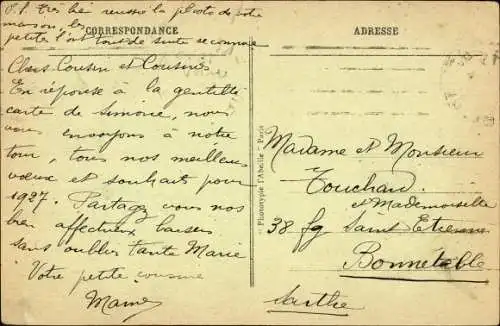 P.S. très bien reussie la photo de votre
maison, les
petites l'ont tout de suite reconnue
CORRESPONDANCE
Chers Cousin et Cousines
En réponse à la gentille
carte de Simone, nous
vous envoyons à notre
tour, tous nos meilleurs
vœux et souhaits pour
1927. Partagez vous nos
bien affectueux baisers
sans oublier tante Marie
Votre petite cousine
ADRESSE
Madame et Monsieur
Touchard
et Mademoiselle
38 fg Saint Etienne
Bonnetable
Sarthe
Phototypie l'Abeille - Paris